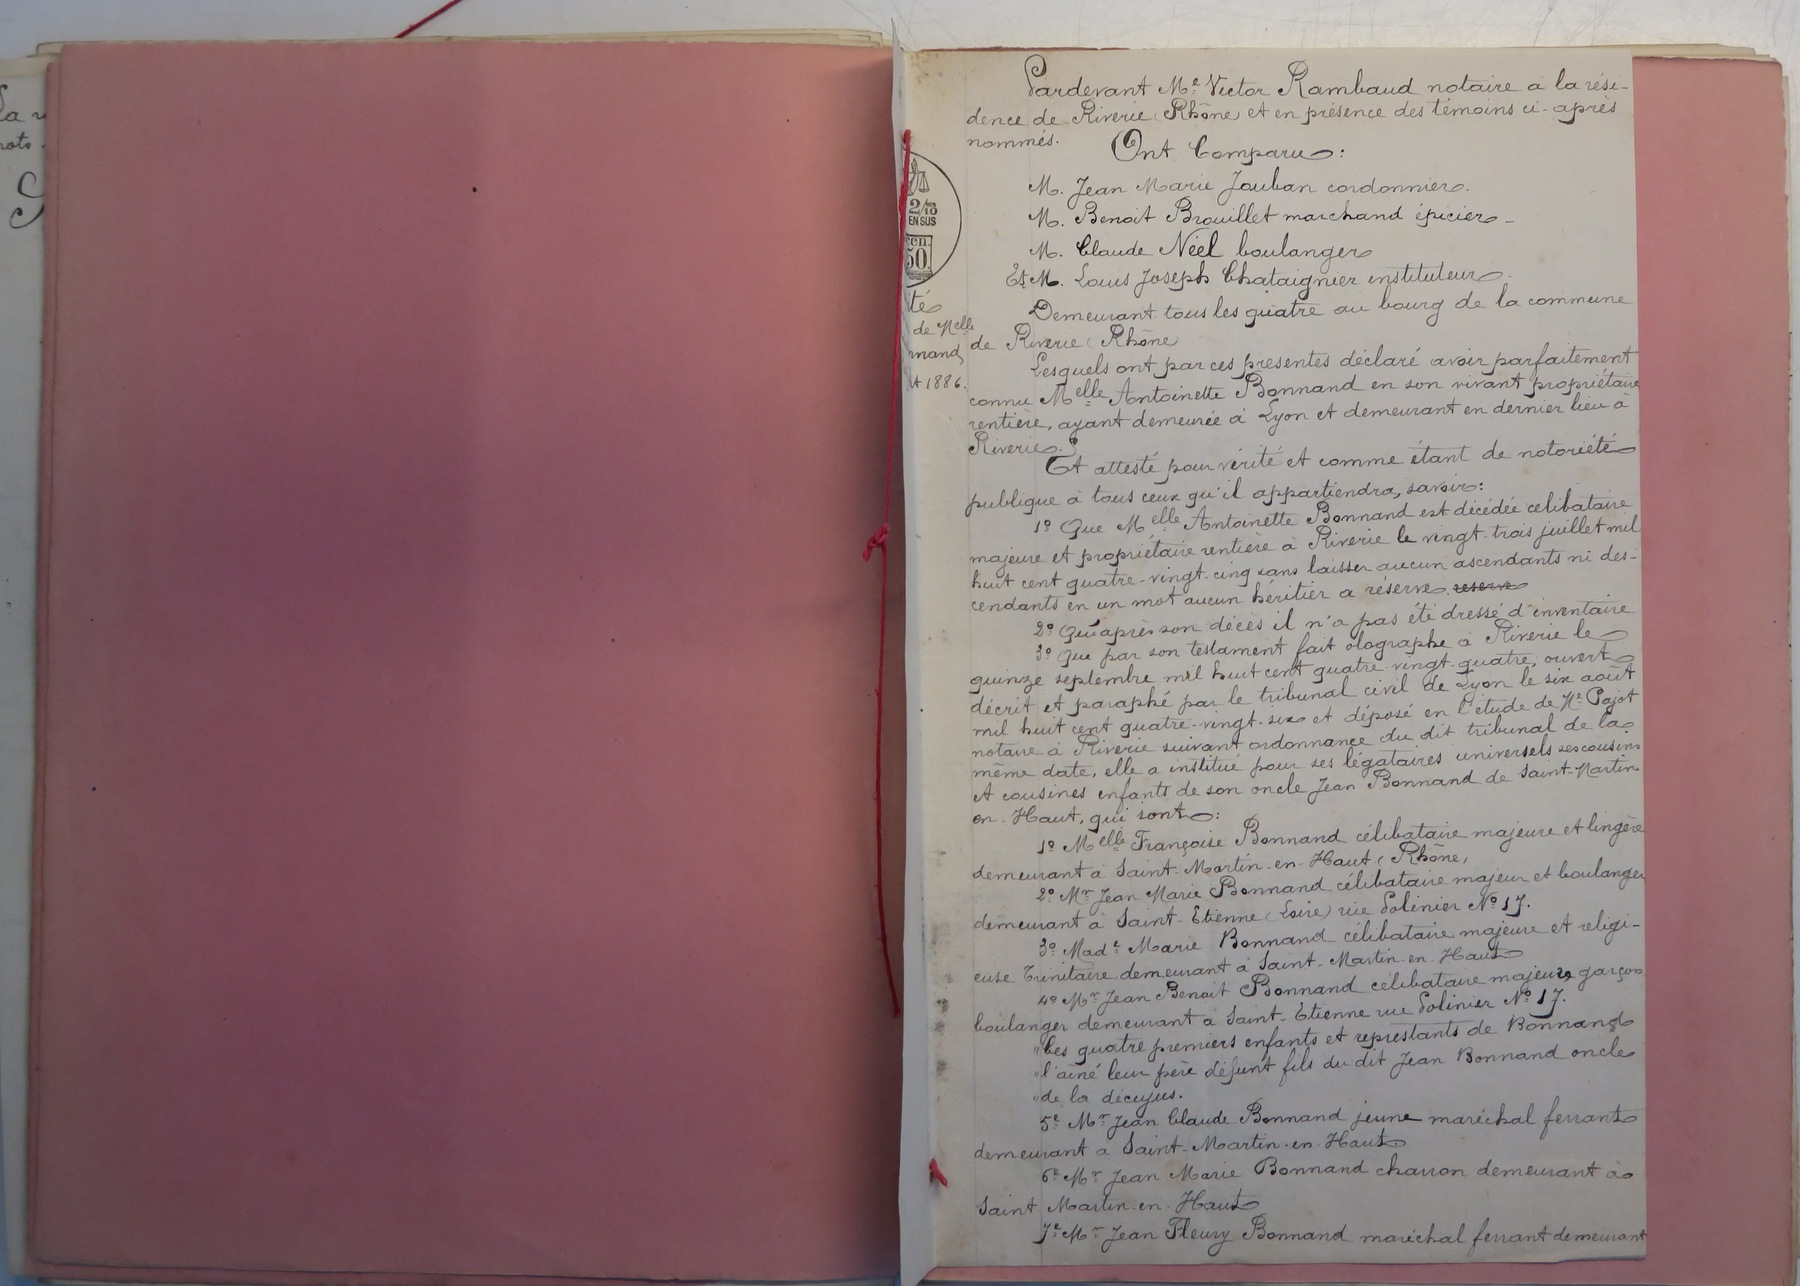 Pardevant Me Victor Rambaud notaire à la rési-
dence de Riverie (Rhône) et en présence des témoins ci-après
nommés.
Ont Comparu :
M. Jean Marie Jouban cordonnier.
M. Benoit Brouillet marchand épicier -
M. Claude Néel boulanger
Et M. Louis Joseph Chataignier instituteur -
Demeurant tous les quatre au bourg de la commune
de Riverie (Rhône)
Lesquels ont par ces présentes déclaré avoir parfaitement
connu Melle Antoinette Bonnand en son vivant propriétaire
rentière, ayant demeurée à Lyon et demeurant en dernier lieu à
Riverie.
Et attesté pour vérité et comme étant de notoriété
publique à tous ceux qu'il appartiendra, savoir :
1º Que Melle Antoinette Bonnand est décédée célibataire
majeure et propriétaire rentière à Riverie le vingt-trois juillet mil
huit cent quatre-vingt-cinq sans laisser aucun ascendants ni des-
cendants en un mot aucun héritier a réserve. reserve
2º Qu'après son décès il n'a pas été dressé d'inventaire
3º Que par son testament fait olographe à Riverie le
quinze septembre mil huit cent quatre-vingt-quatre, ouvert
décrit et paraphé par le tribunal civil de Lyon le six août
mil huit cent quatre-vingt-six et déposé en l'étude de Me Pajot
notaire à Riverie suivant ordonnance du dit tribunal de la
même date, elle a institué pour ses légataires universels ses cousins
et cousines enfants de son oncle Jean Bonnand de Saint-Martin
en-Haut, qui sont :
1º Melle Françoise Bonnand célibataire majeure et lingère
demeurant à Saint-Martin-en-Haut (Rhône)
2º Mr Jean Marie Bonnand célibataire majeur et boulanger
demeurant à Saint-Etienne (Loire) rue Polinier Nº 17.
3º Made Marie Bonnand célibataire majeure et religi-
euse Trinitaire demeurant à Saint-Martin-en-Haut
4º Mr Jean Benoit Bonnand célibataire majeur, garçon
boulanger demeurant à Saint-Etienne rue Polinier Nº 17.
"Les quatre premiers enfants et represtants de Bonnand
"l'aîné leur père défunt fils du dit Jean Bonnand oncle
"de la décujus.
5e Mr Jean Claude Bonnand jeune maréchal ferrant
demeurant à Saint-Martin-en-Haut
6e Mr Jean Marie Bonnand charron demeurant à
Saint Martin-en-Haut
7e Mr Jean Fleury Bonnand maréchal ferrant demeurant
2/10
EN SUS
cen.
50.
ité
de Melle
nnand
1886.